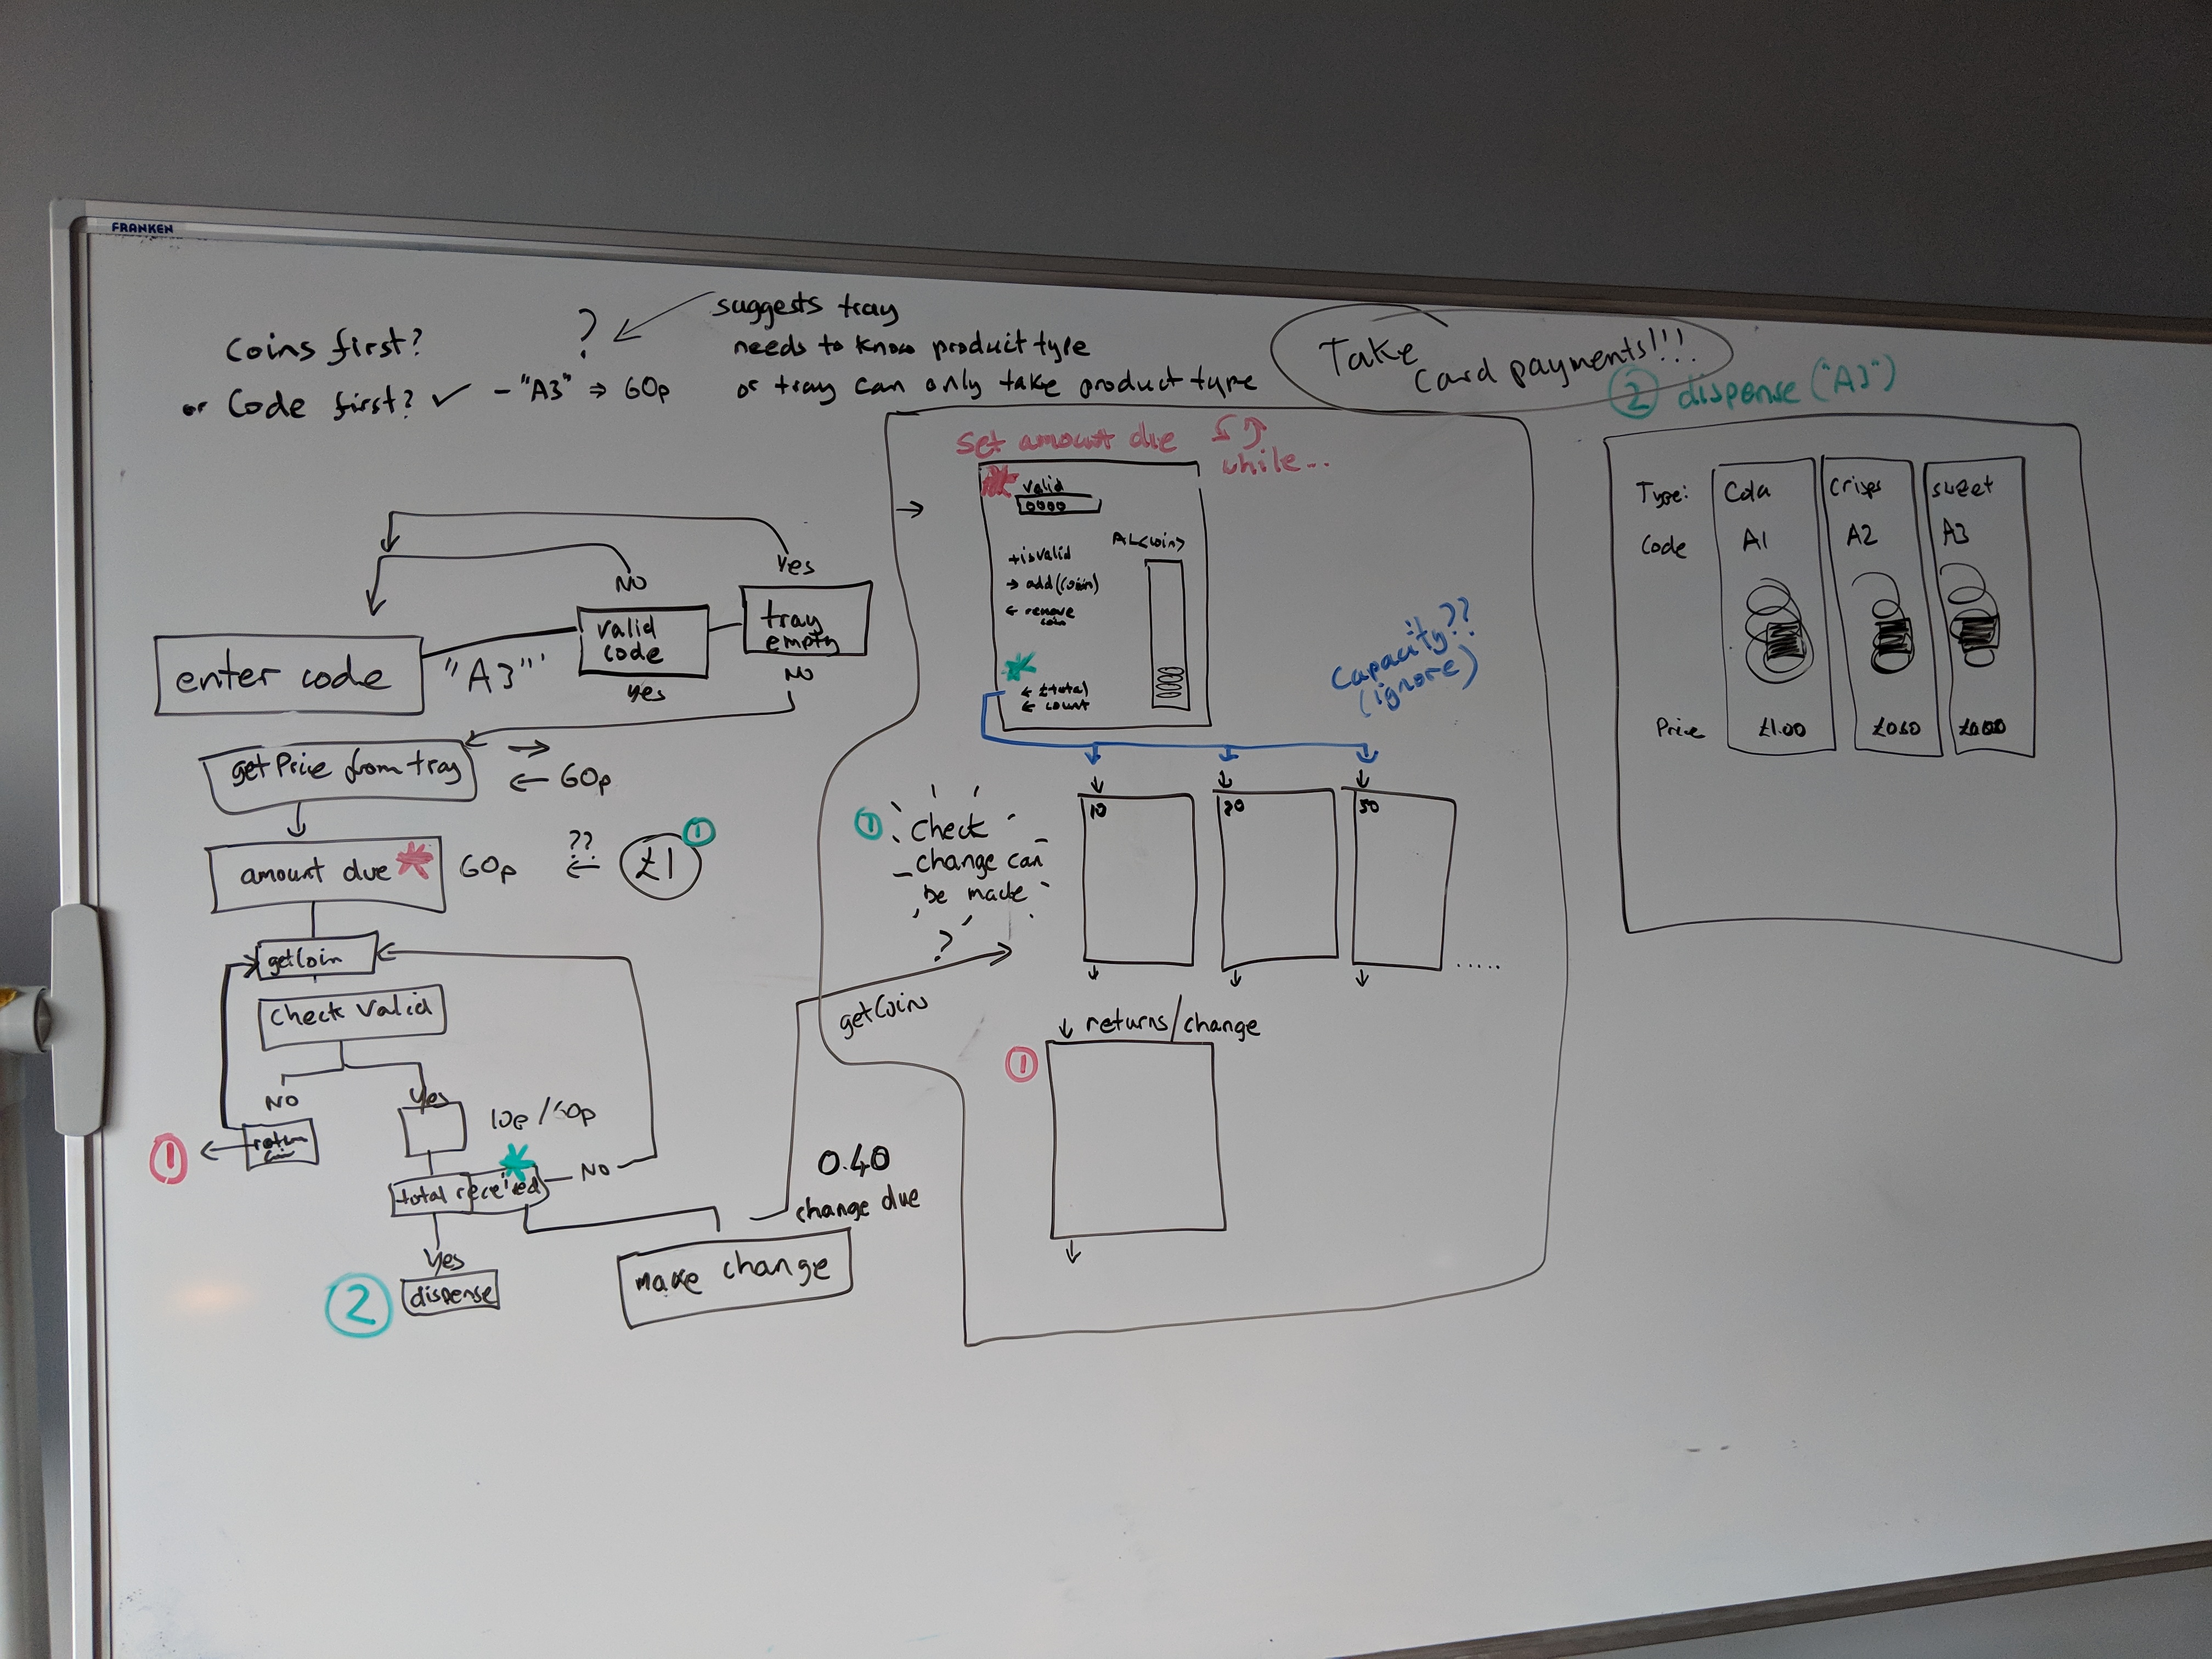 FRANKEN
Coins first?
or Code first? ✓ - "A3" ⇒ 60p
?
suggests tray
needs to know product type
or tray can only take product type
Take
Card payments!!!
② dispense ("A3")
enter code
"A3"
NO
valid
code
yes
Yes
tray
empty
NO
getPrice from tray
→
← 60p
amount due
60p
??
←
£1
①
getCoin
Check Valid
NO
Yes
return
①
10p/60p
total received
NO
Yes
② dispense
make change
0.40
change due
getCoin
?
Set amount due
while...
valid
0000
+isvalid
→ add(coin)
← remove
coin
← £total
← count
AL<coin>
Capacity??
(ignore)
① Check
change can
be made
10
20
50
.....
↓ returns/change
①
Type: Cola Crisps sweet
Code A1 A2 A3
Price £1.00